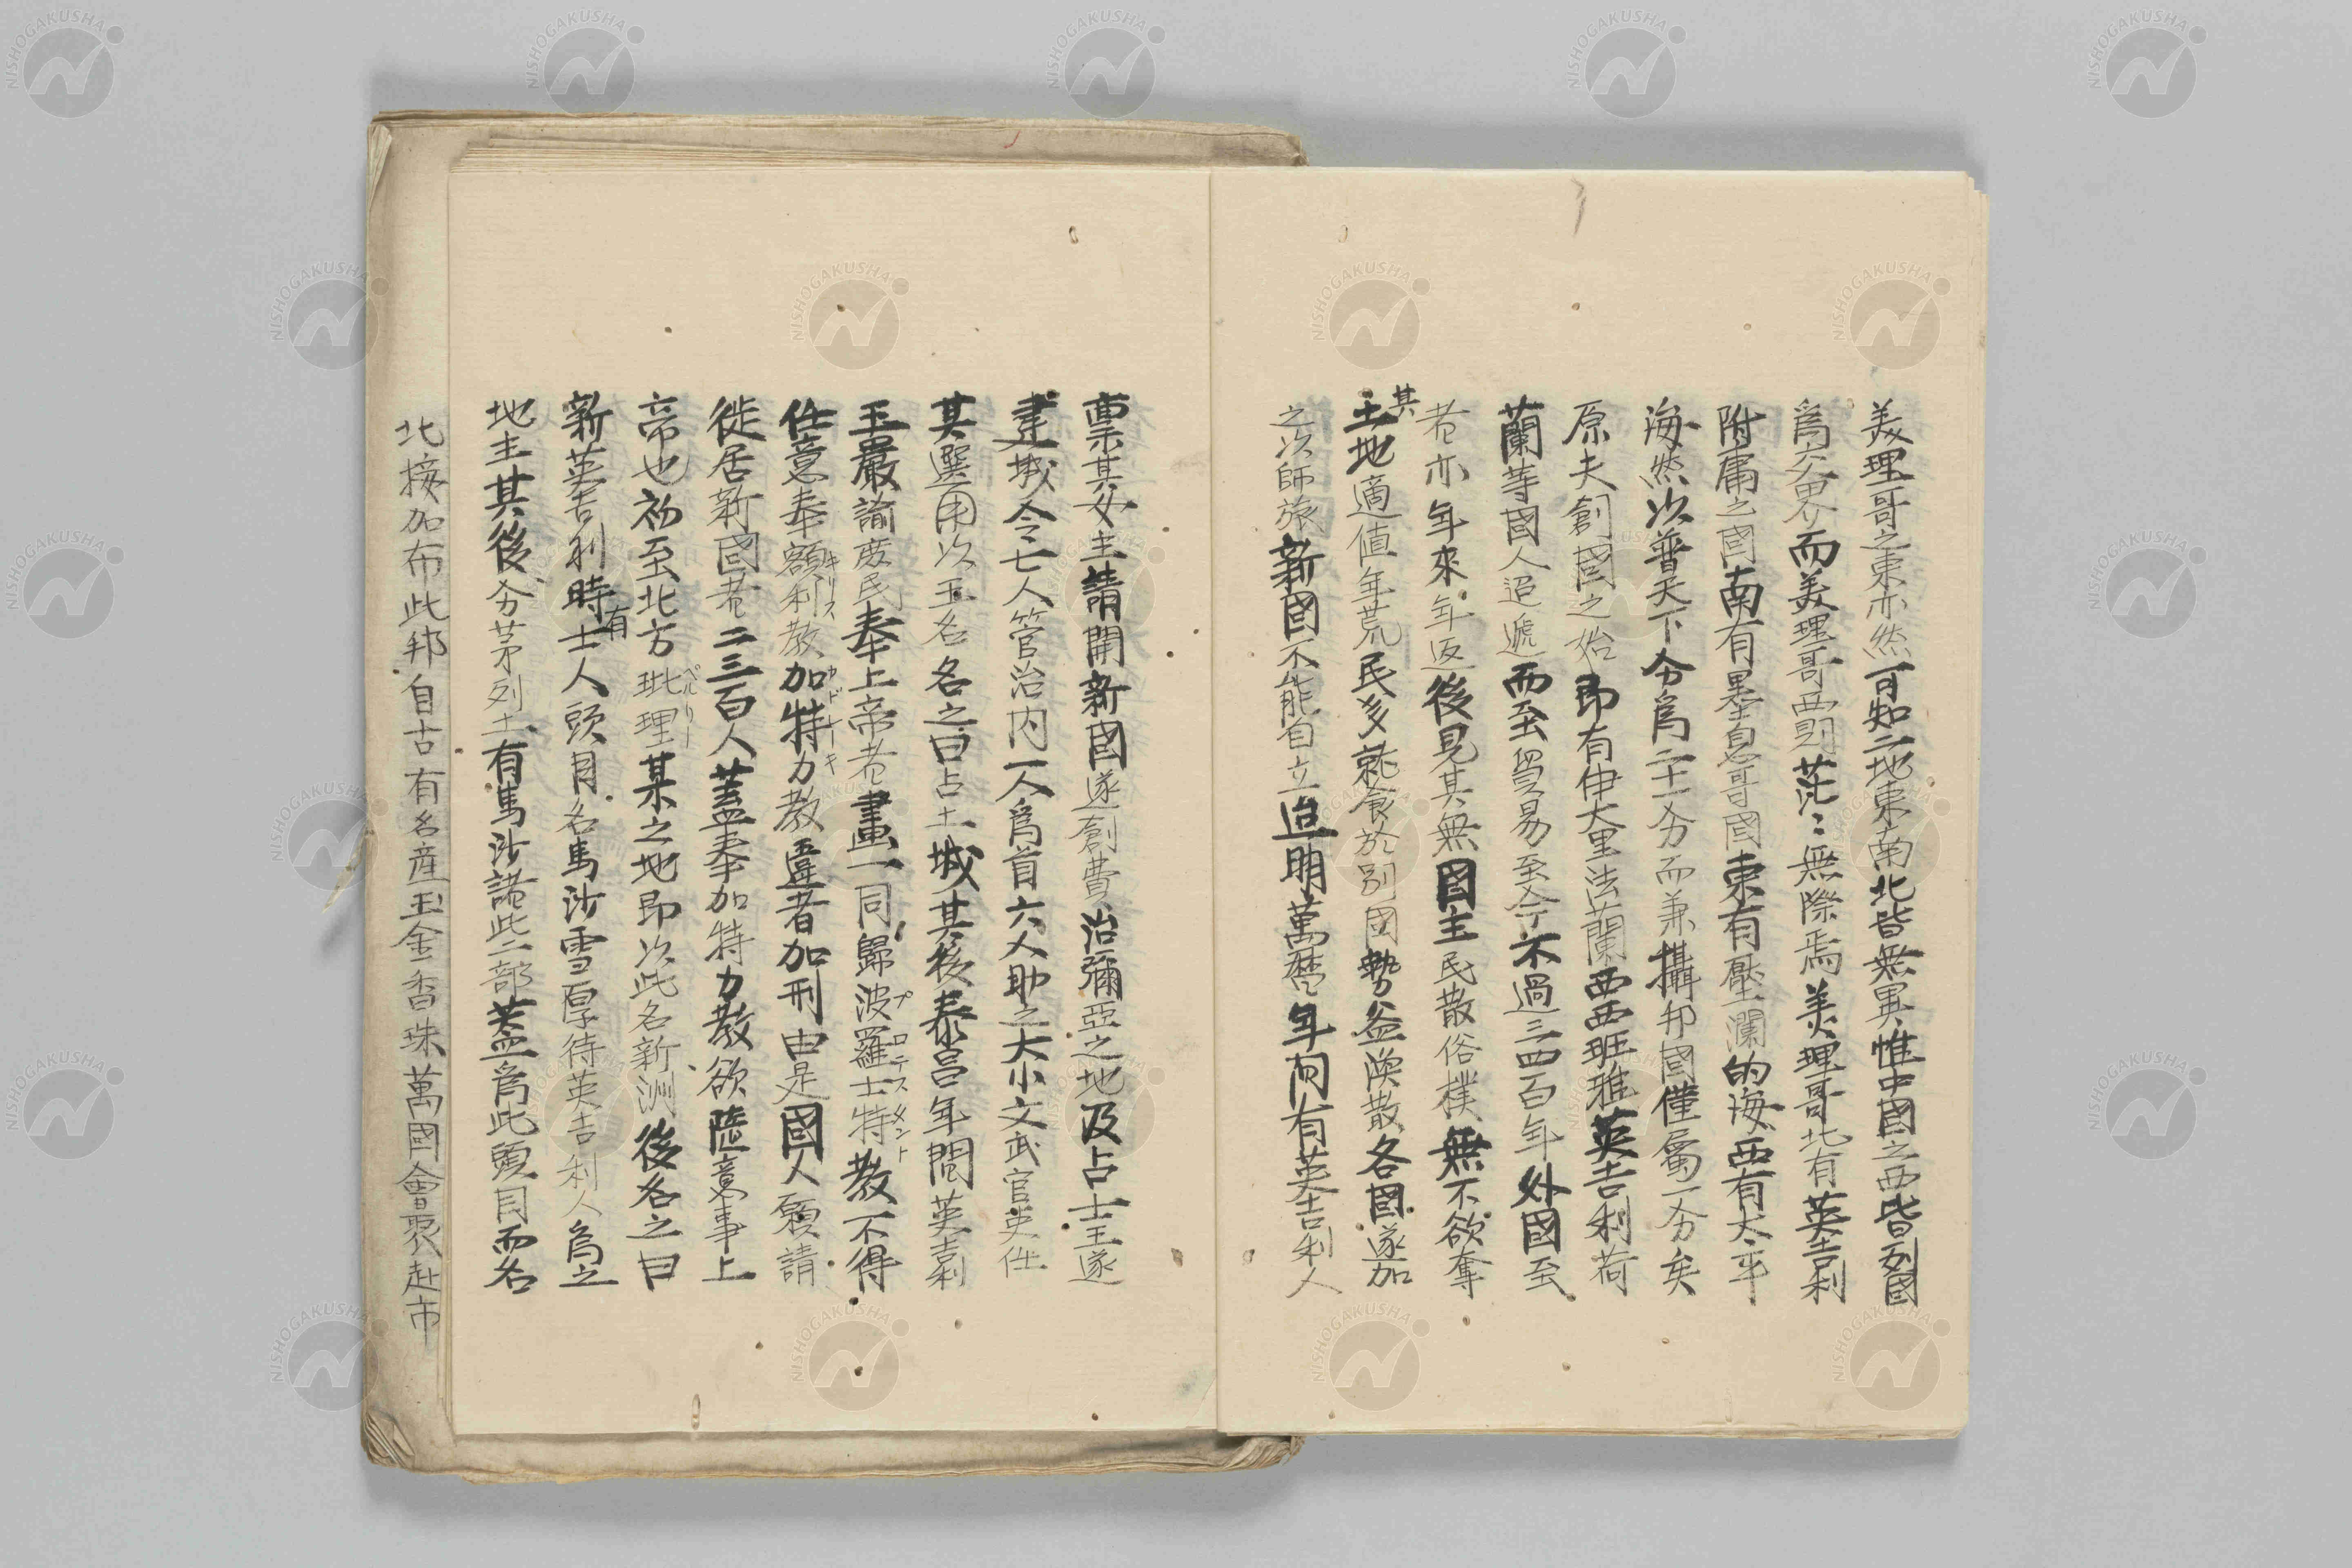 美理哥之東亦然可知二地東南北皆無異惟中國之西皆列國
爲交界而美理哥西則茫〻無際焉美理哥北有英吉利
附庸之國南有墨息哥國東有壓瀾的海西有大平
海然以普天下分爲二十一分而兼攝邦國僅屬一分矣
原夫創國之始即有伊大里法蘭西西班雅英吉利荷
蘭等國人迢遞而至貿易至今不過三四百年外國至
者亦年來年返後見其無國主民散俗樸無不欲奪
其土地適値年荒民多就食於別國勢益渙散各國遂加
之以師旅新國不能自立迨明萬暦年間有英吉利人
稟其女主請開新國遂創費治彌亞之地及占士王遂
建城令七人管治内一人爲首六人助之大小文武官吏任
其選用以王名名之曰占士城其後泰呂年間英吉利
王嚴諭庶民奉上帝者畫一同歸波羅士特教不得
プロテスメント
任意奉額利教加特力教違者加刑由是國人願請
キリス カドリーキ
徙居新國者二三百人蓋奉加特力教欲陡意事上
帝也初至北方玭理某之地即以此名新洲後名之曰
ペルリー
新英吉利時有士人頭目名馬沙雪厚待英吉利人爲之
地主其後分茅列土有馬沙諸此二部蓋爲此頭目而名
北接加布此邦自古有名産玉金香珠萬國會聚赴市
NISHOGAKUSHA